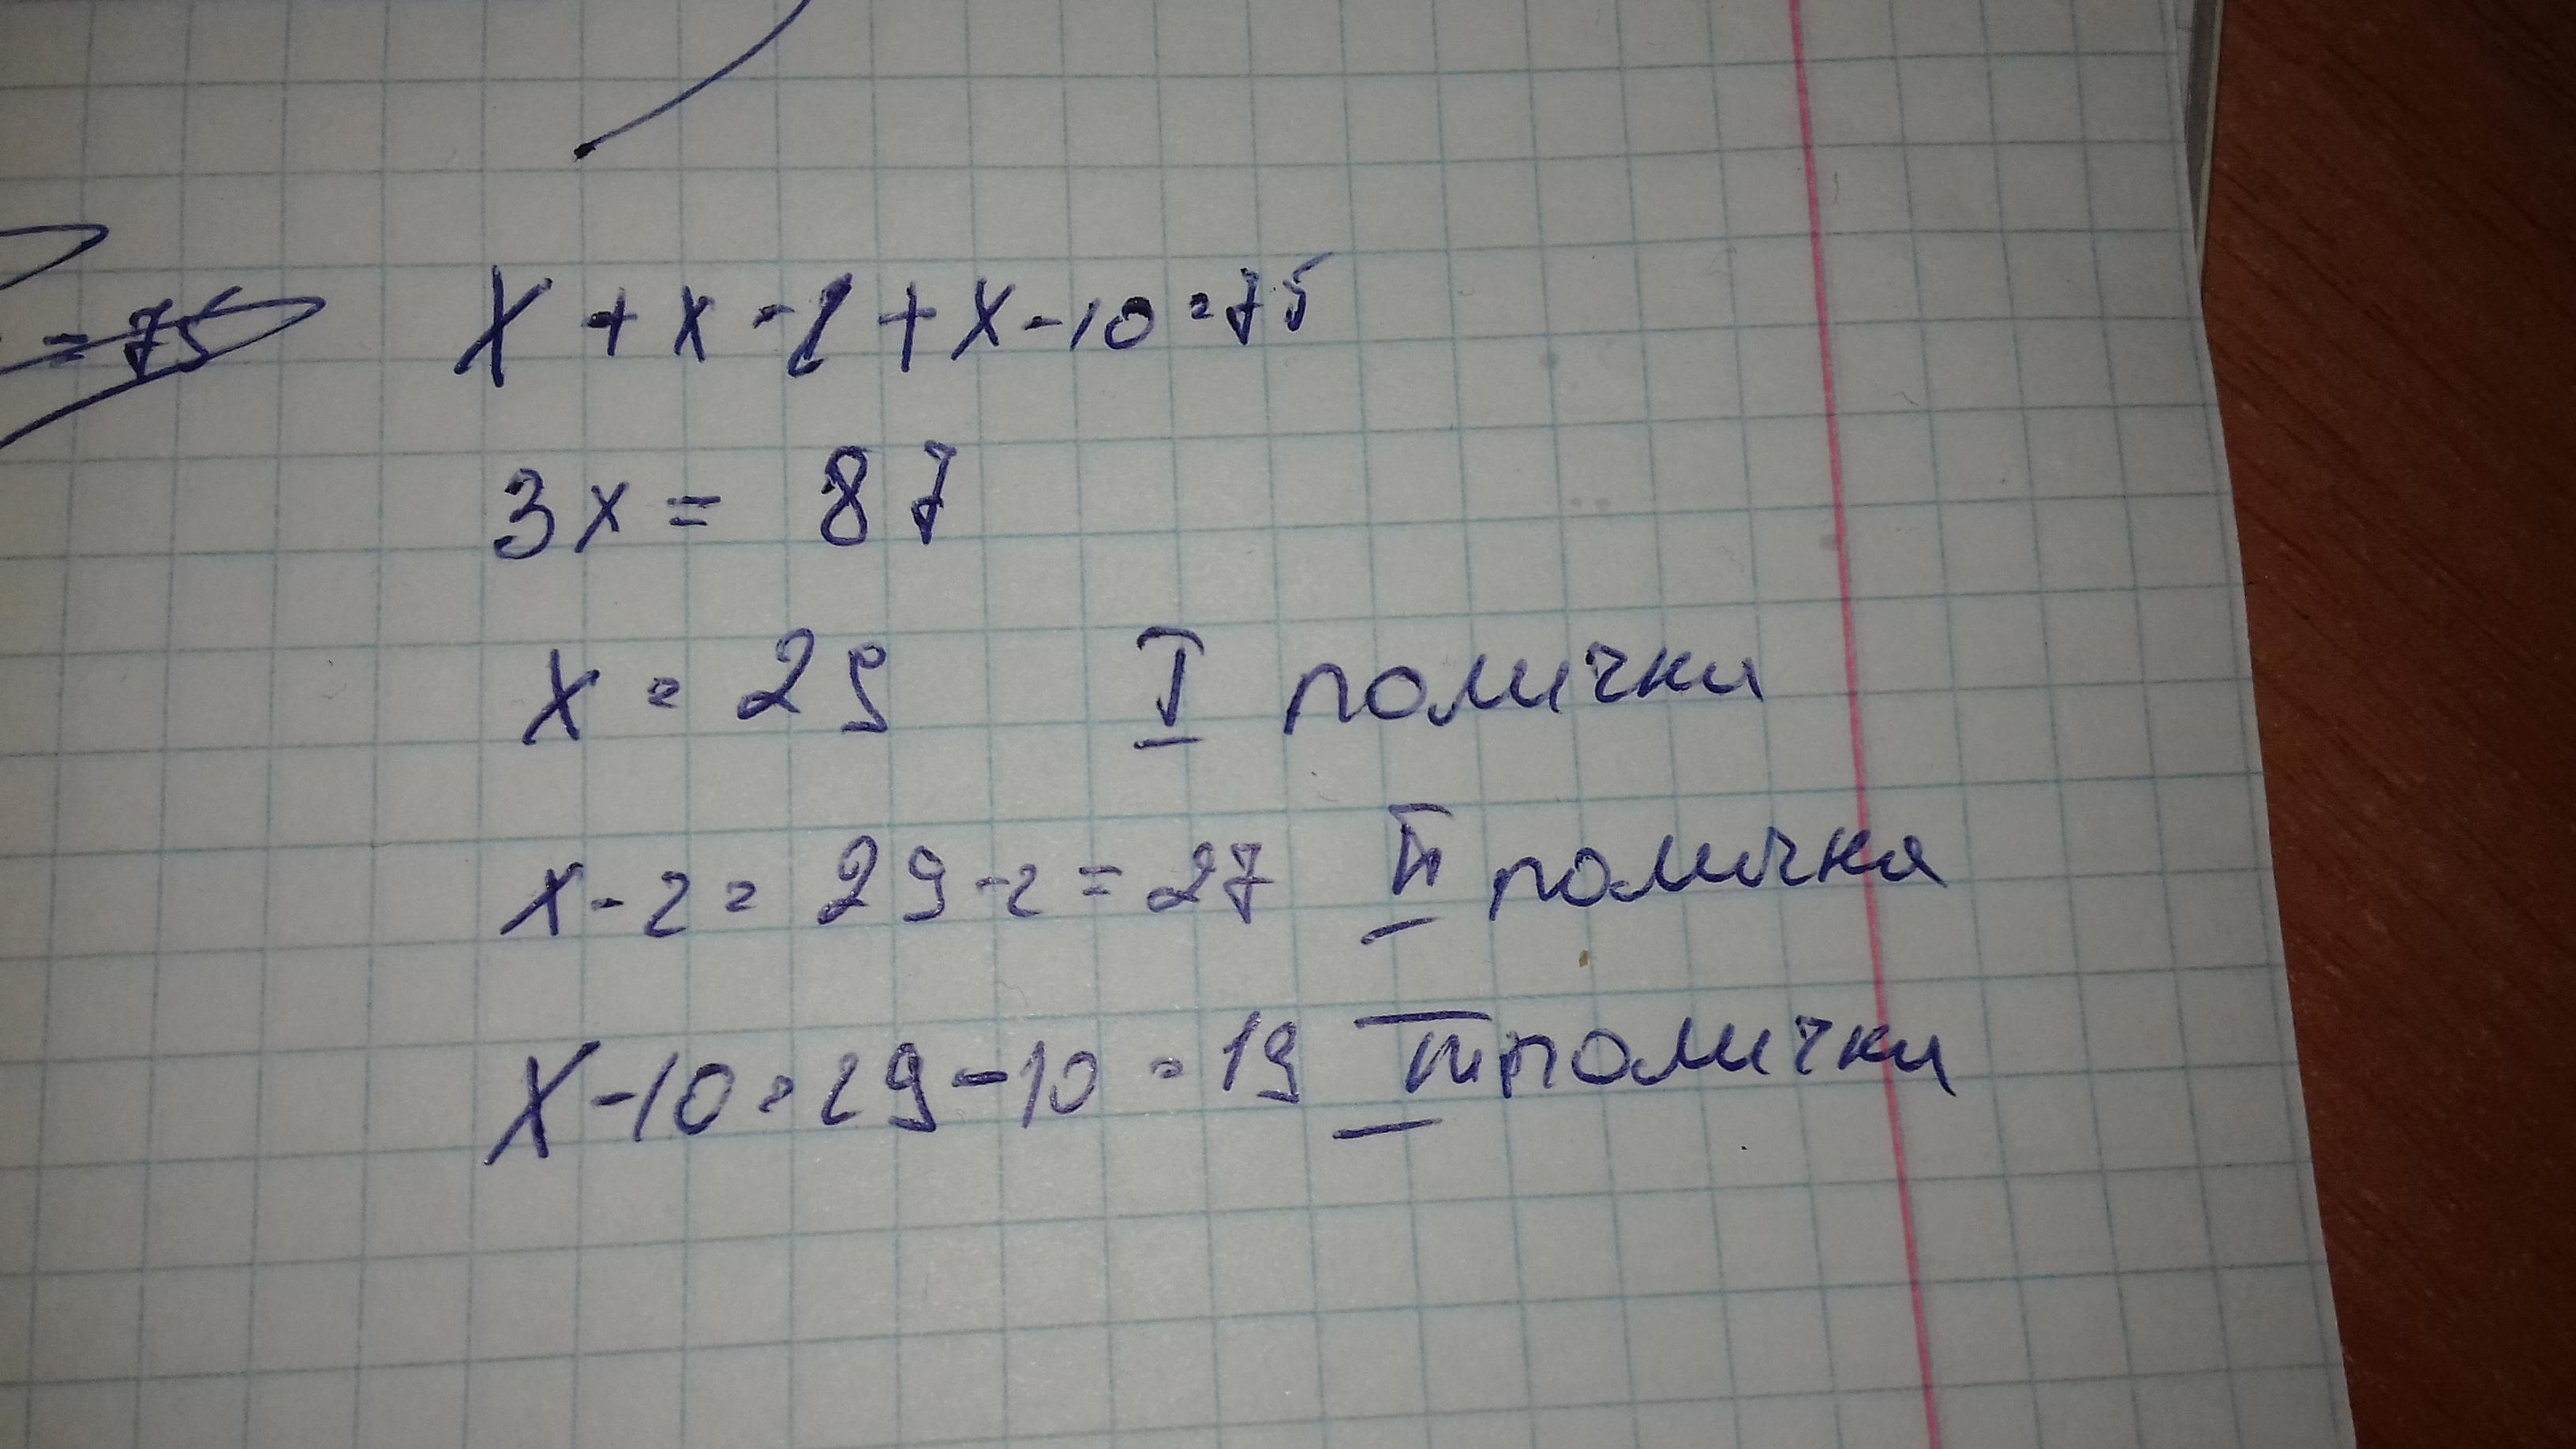 = 75
x + x - 2 + x - 10 = 75
3x = 87
x = 29 I полички
x - 2 = 29 - 2 = 27 II поличка
x - 10 = 29 - 10 = 19 III полички